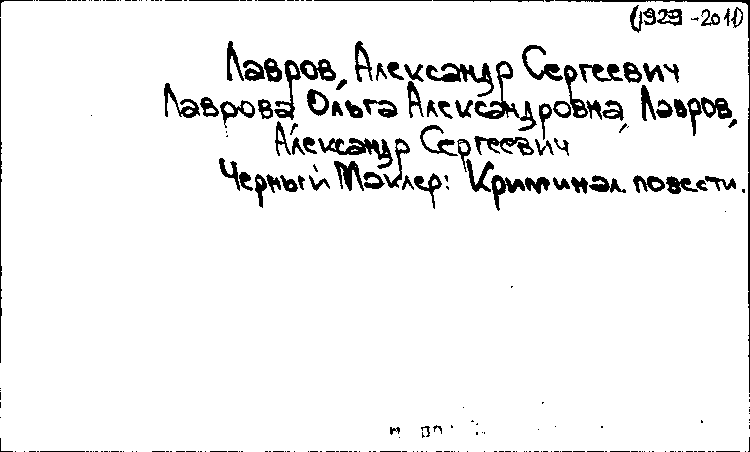 (1929-2011)
Лавров, Александр Сергеевич
Лаврова, Ольга Александровна, Лавров,
Александр Сергеевич
Черный Маклер: Криминал. повести.